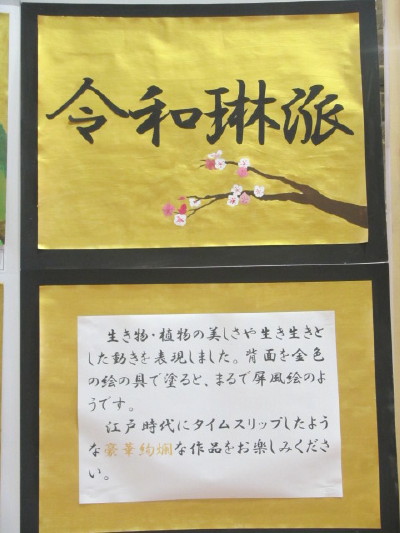 令和琳派
生き物・植物の美しさや生き生きと
した動きを表現しました。背面を金色
の絵の具で塗ると、まるで屏風絵のよ
うです。
江戸時代にタイムスリップしたよう
な豪華絢爛な作品をお楽しみくださ
い。